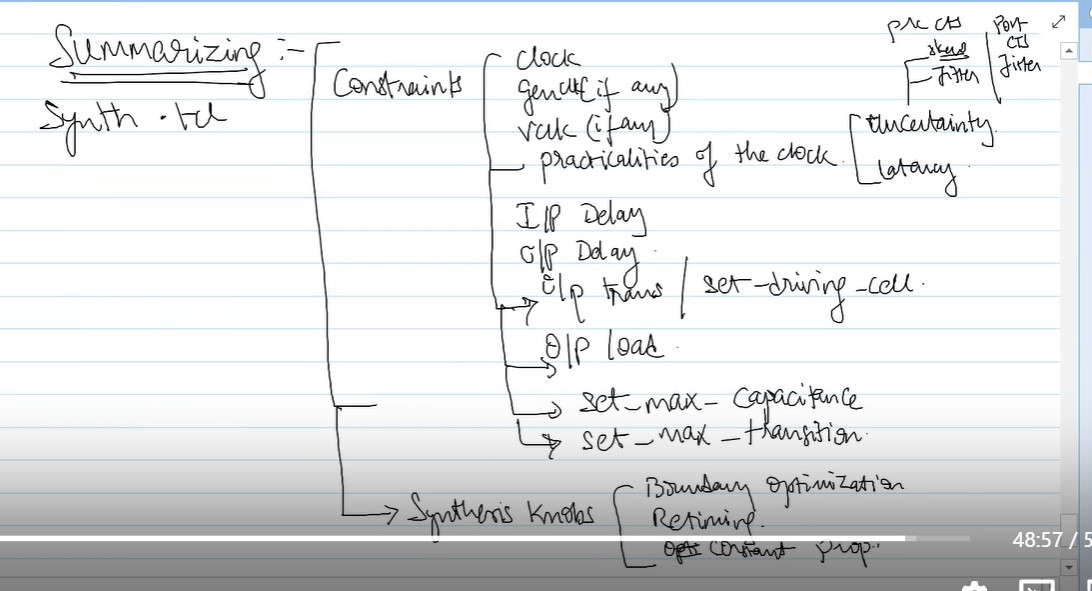 Summarizing :-
Synth.tcl
Constraints
clock
genclk (if any)
vclk (if any)
practicalities of the clock.
Uncertainty
Latency
pre CTS
skew
Jitter
Post
CTS
Jitter
I/P Delay
O/P Delay
I/p trans / set-driving-cell.
O/P load
set-max-capacitance
set-max-transition
Synthesis knobs
Boundary optimization
Retiming
constant prop.
48:57 / 5